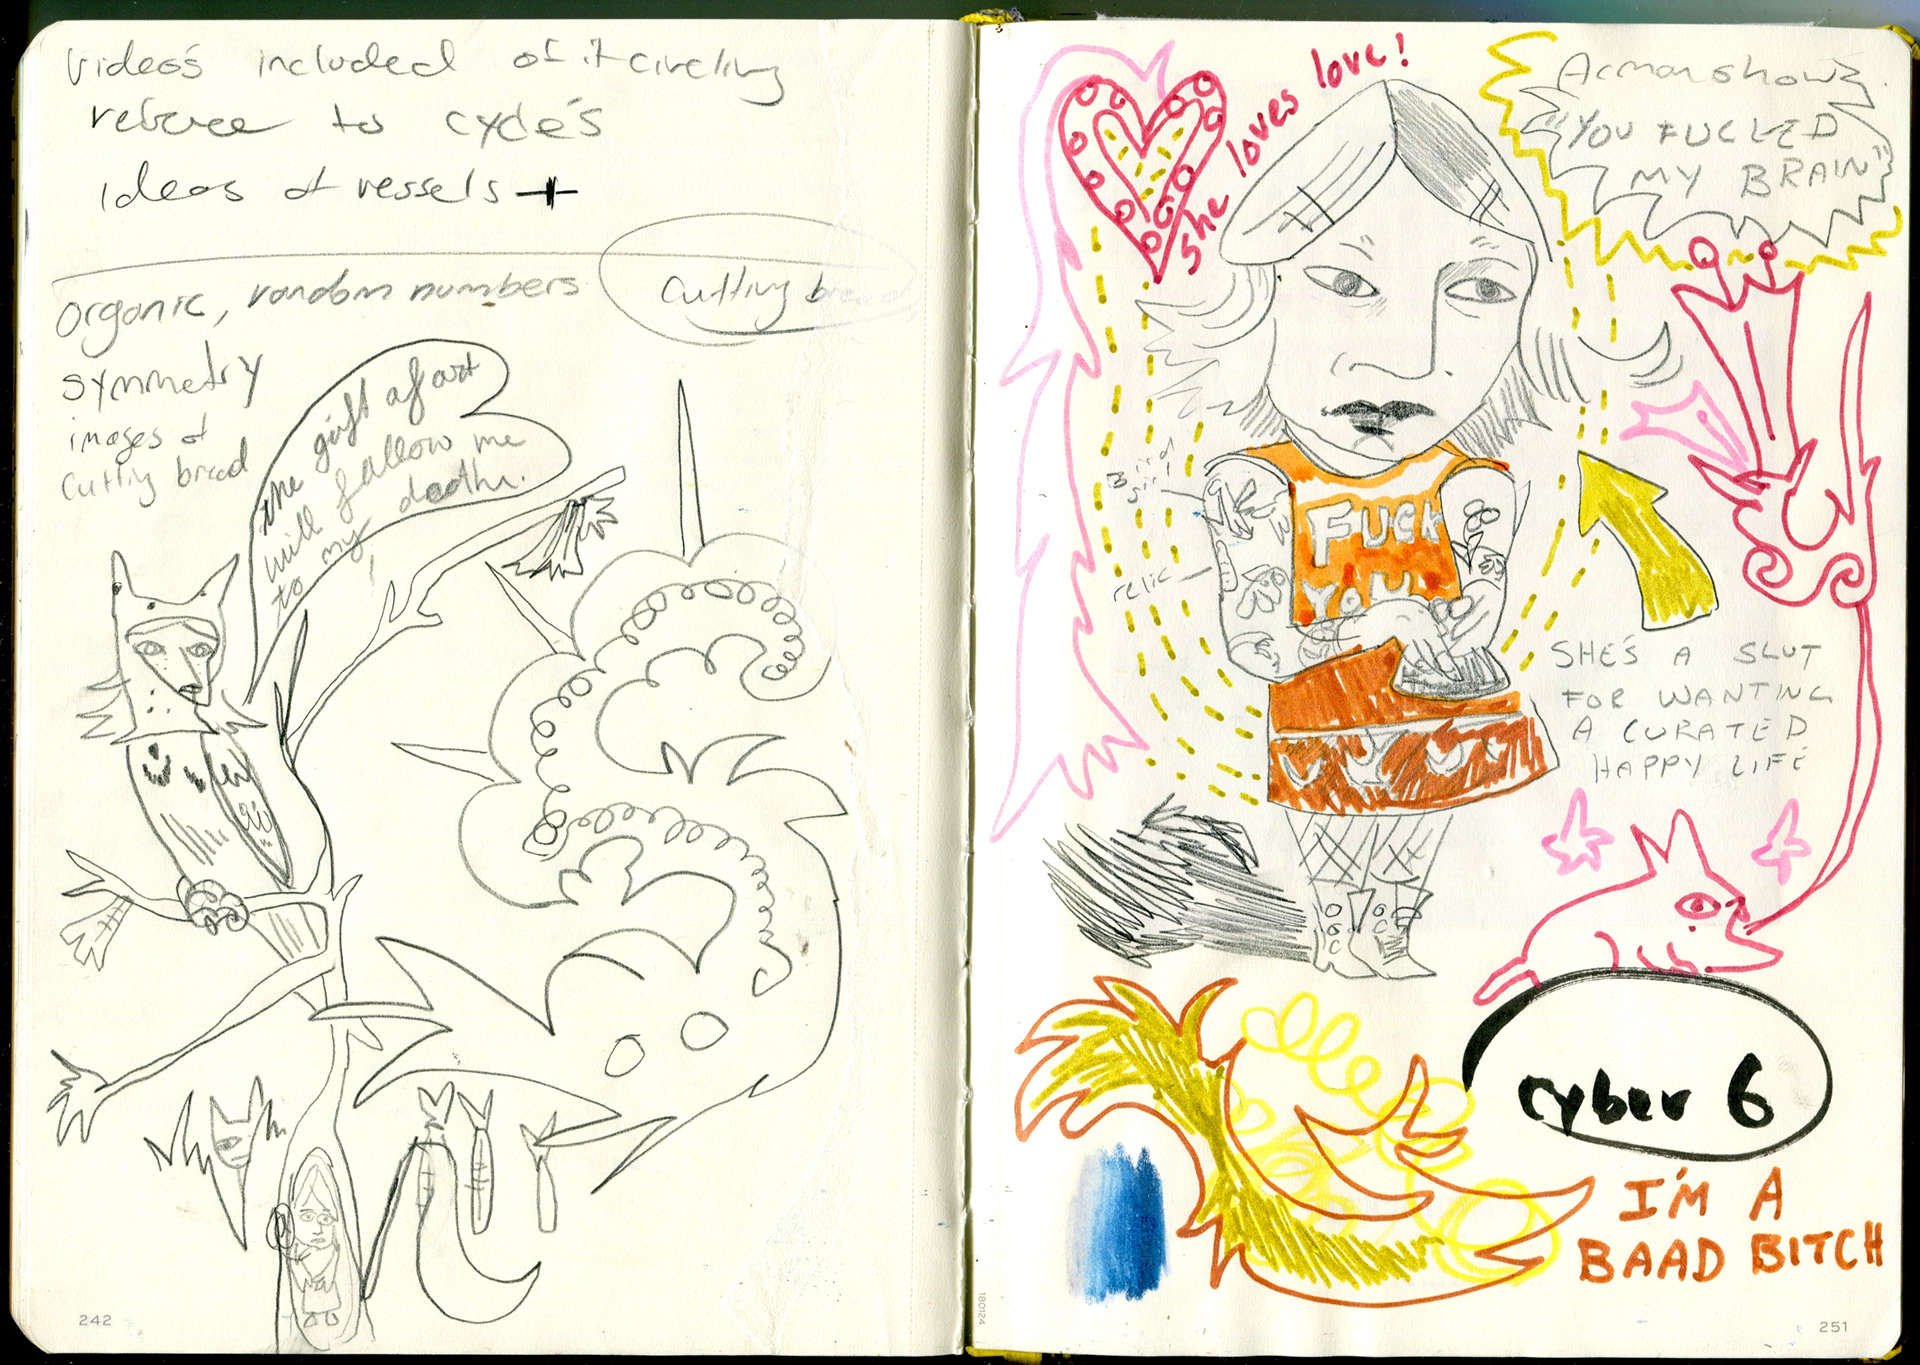 Videos included of it circling
refence to cycle's
Ideas of vessels +
organic, random numbers
Cutting bread
symmetry
images of
Cutting bread
the gift of art
will follow me
to my death.
242
she loves love!
"YOU FUCKED
MY BRAIN"
Bird
relic
FUCK
YOU
SHE'S A SLUT
FOR WANTING
A CURATED
HAPPY LIFE
cyber 6
I'M A
BAAD BITCH
180124
251